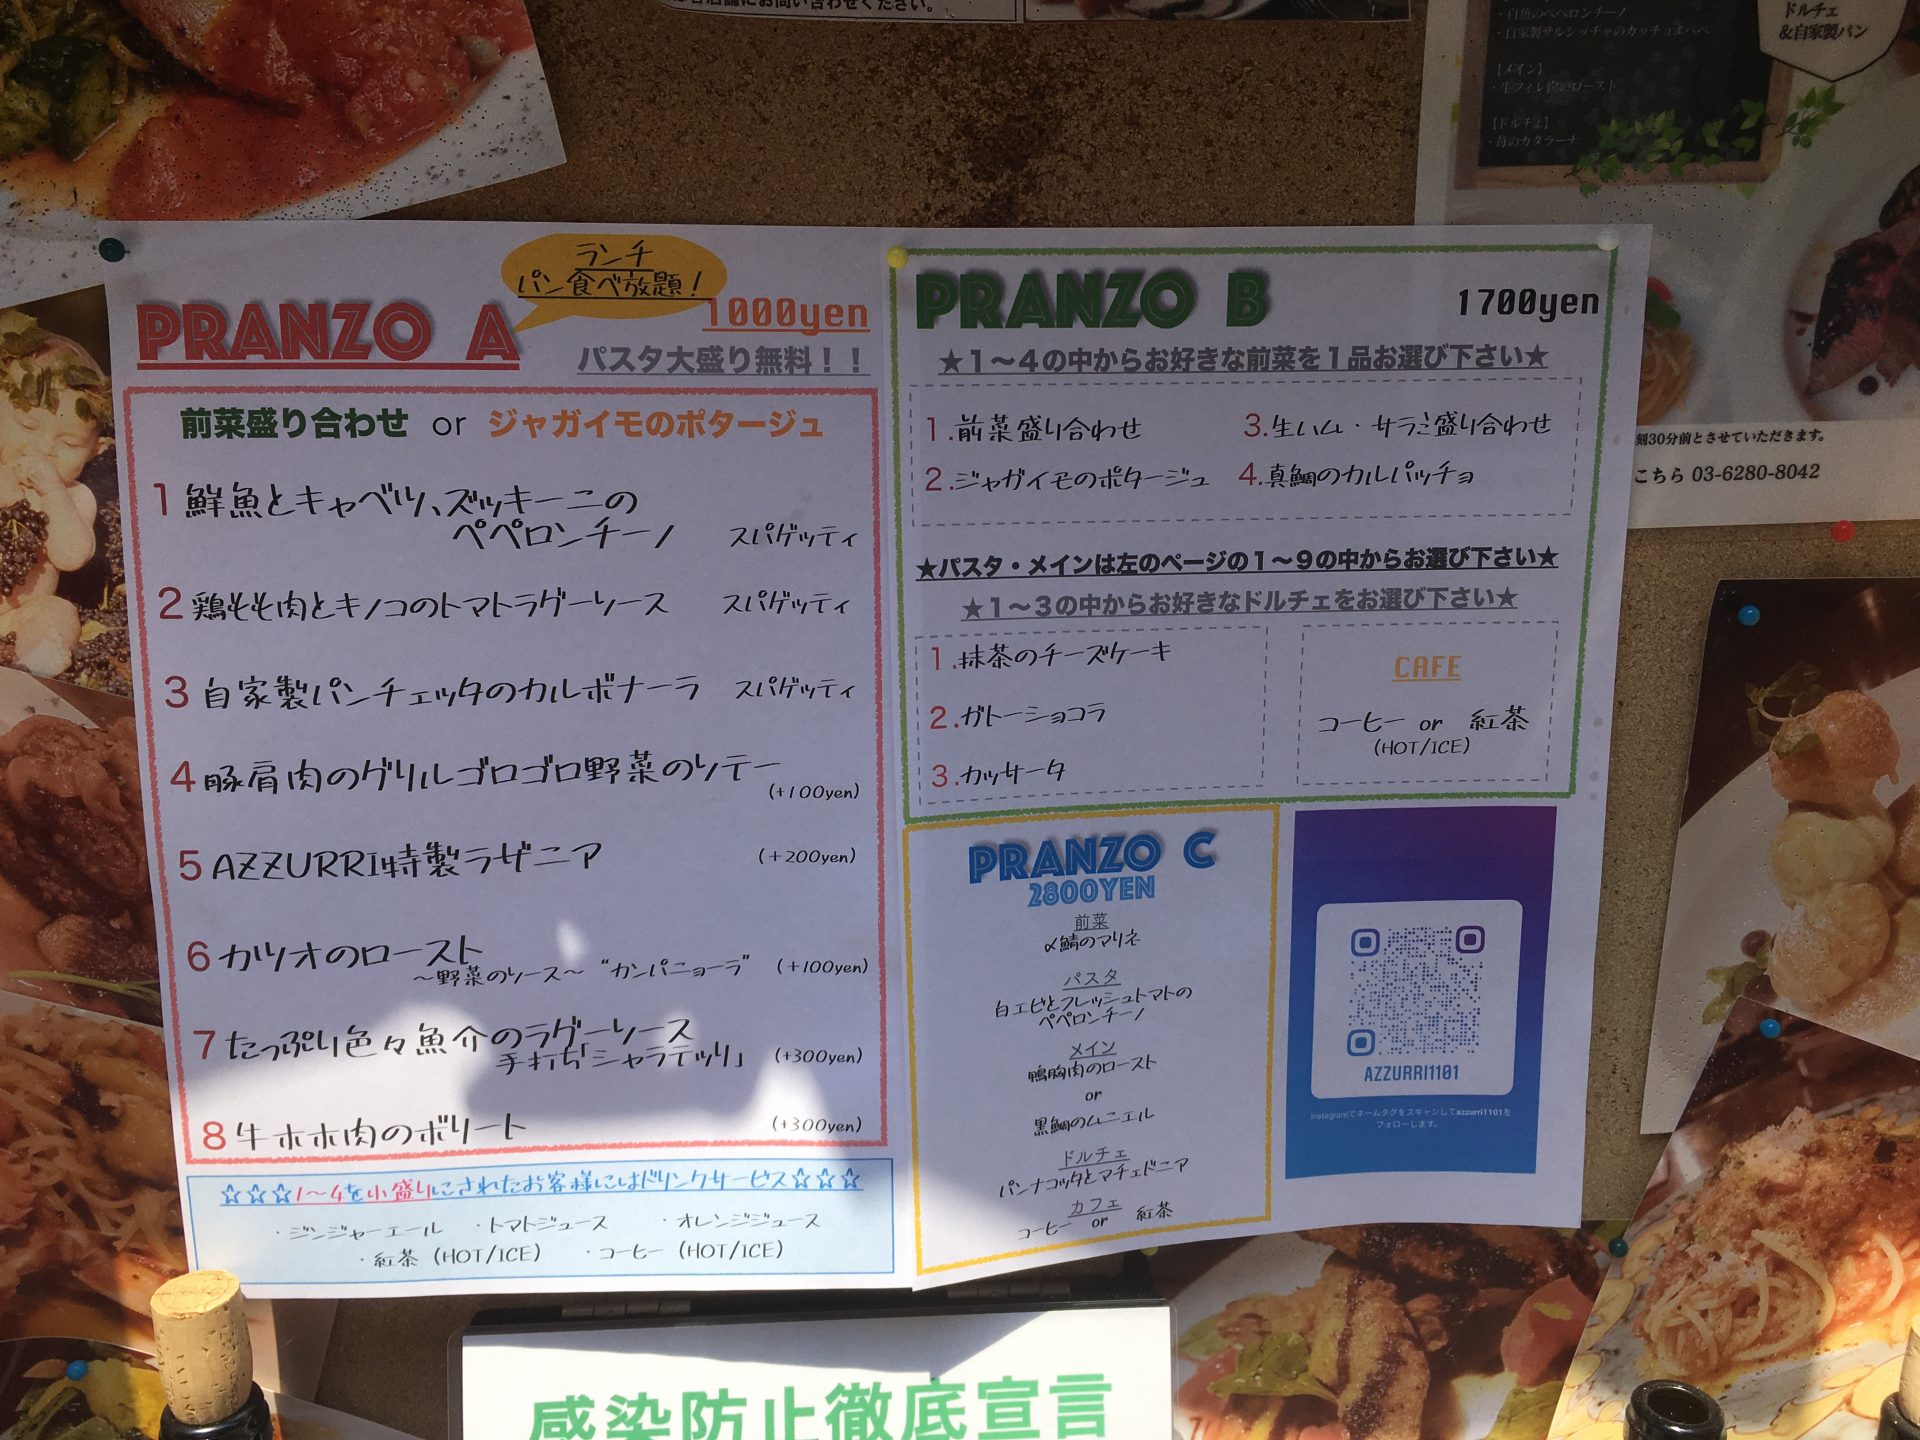 にお問い合わせください。
・白魚のペペロンチーノ
・自家製サルシッチャのカッチョエペペ
【メイン】
・牛フィレ肉のロースト
【ドルチェ】
・苺のカタラーナ
ドルチェ
&自家製パン
刻30分前とさせていただきます。
こちら 03-6280-8042
ランチ
パン食べ放題!
PRANZO A
1000yen
パスタ大盛り無料！！
前菜盛り合わせ or ジャガイモのポタージュ
1 鮮魚とキャベツ、ズッキーニの
ペペロンチーノ スパゲッティ
2 鶏もも肉とキノコのトマトラグーソース スパゲッティ
3 自家製パンチェッタのカルボナーラ スパゲッティ
4 豚肩肉のグリルゴロゴロ野菜のソテー
(+100yen)
5 AZZURRI特製ラザニア (+200yen)
6 カツオのロースト
〜野菜のソース〜 "カンパニョーラ" (+100yen)
7 たっぷり色々魚介のラグーソース
手打ち「シャラテッリ」 (+300yen)
8 牛ホホ肉のボリート (+300yen)
☆☆☆1〜4を小盛りにされたお客様にはドリンクサービス☆☆☆
・ジンジャーエール ・トマトジュース ・オレンジジュース
・紅茶 (HOT/ICE) ・コーヒー (HOT/ICE)
PRANZO B
1700yen
★１〜４の中からお好きな前菜を１品お選び下さい★
1.前菜盛り合わせ 3.生ハム・サラミ盛り合わせ
2.ジャガイモのポタージュ 4.真鯛のカルパッチョ
★パスタ・メインは左のページの１〜９の中からお選び下さい★
★１〜３の中からお好きなドルチェをお選び下さい★
1.抹茶のチーズケーキ
2.ガトーショコラ
3.カッサータ
CAFE
コーヒー or 紅茶
(HOT/ICE)
PRANZO C
2800YEN
前菜
〆鯖のマリネ
パスタ
白エビとフレッシュトマトの
ペペロンチーノ
メイン
鴨胸肉のロースト
or
黒鯛のムニエル
ドルチェ
パンナコッタとマチェドニア
カフェ
コーヒー or 紅茶
AZZURRI1101
Instagramでネームタグをスキャンしてazzurri1101を
フォローします。
感染防止徹底宣言